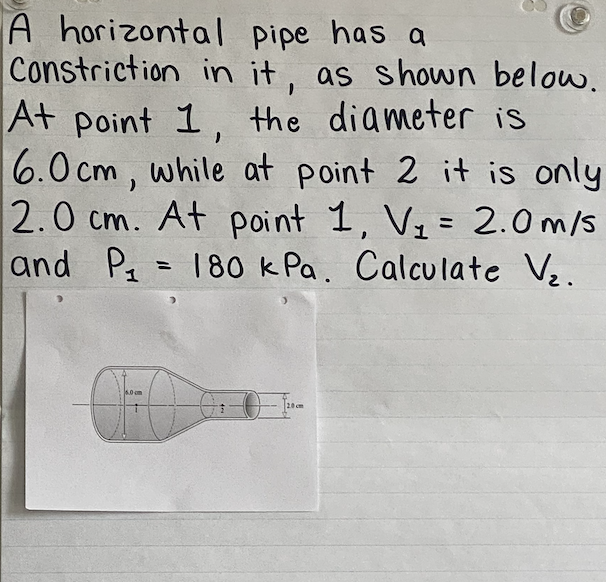 A horizontal pipe has a
Constriction in it, as shown below.
At point 1, the diameter is
6.0 cm, while at point 2 it is only
2.0 cm. At point 1, V₁ = 2.0 m/s
and P₁ = 180 kPa. Calculate V₂.
6.0 cm
1
2
2.0 cm